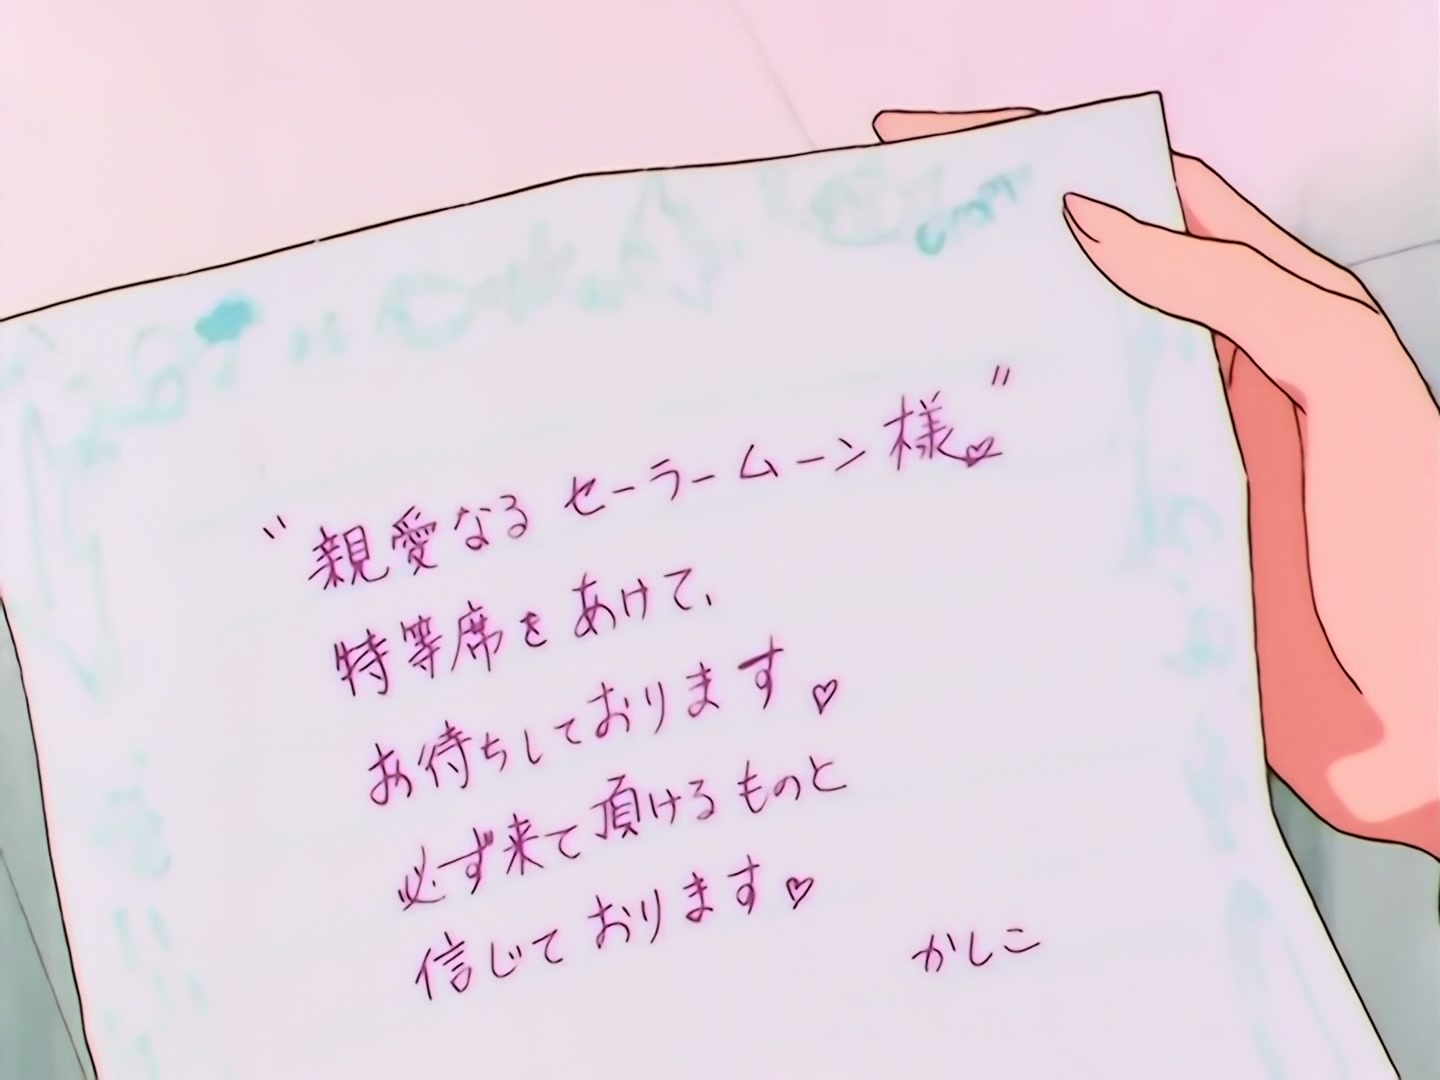 〝親愛なるセーラームーン様♥〞
特等席をあけて、
お待ちしております♡
必ず来て頂けるものと
信じております♡
かしこ